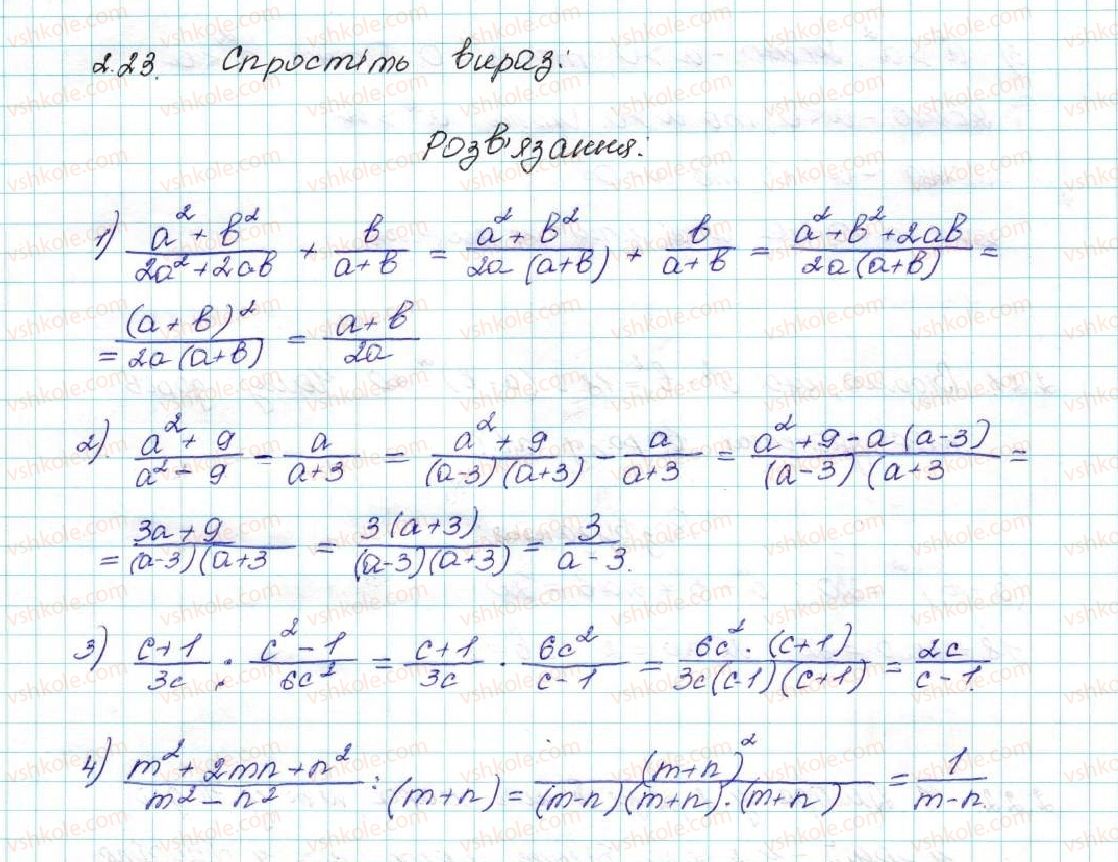 2.23. Спростіть вираз:
Розв'язання:
1) (a² + b²)/(2a² + 2ab) + b/(a + b) = (a² + b²)/(2a (a+b)) + b/(a + b) = (a² + b² + 2ab)/(2a (a+b)) =
= (a + b)²/(2a (a+b)) = (a + b)/(2a)
2). (a² + 9)/(a² - 9) - a/(a+3) = (a² + 9)/((a-3) (a+3)) - a/(a+3) = (a² + 9 - a (a-3))/((a-3) (a+3 =
= (3a + 9)/((a-3) (a+3 = 3 (a+3)/((a-3) (a+3)) = 3/(a - 3).
3) (c+1)/(3c) : (c² - 1)/(6c²) = (c+1)/(3c) · 6c²/(c - 1) = 6c² · (c+1)/(3c (c-1) (c+1)) = 2c/(c - 1).
4) (m² + 2mn + n²)/(m² - n²) : (m + n) = (m+n)²/((m-n) (m+n) · (m+n)) = 1/(m - n).
vshkole.com